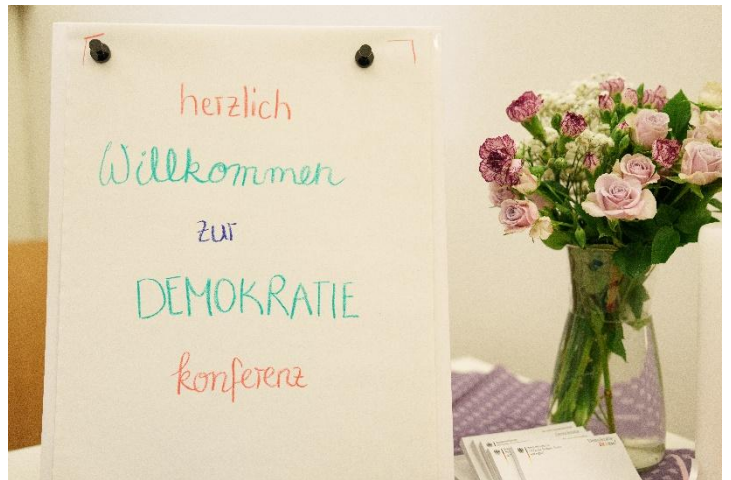 herzlich
Willkommen
zur
DEMOKRATIE
konferenz